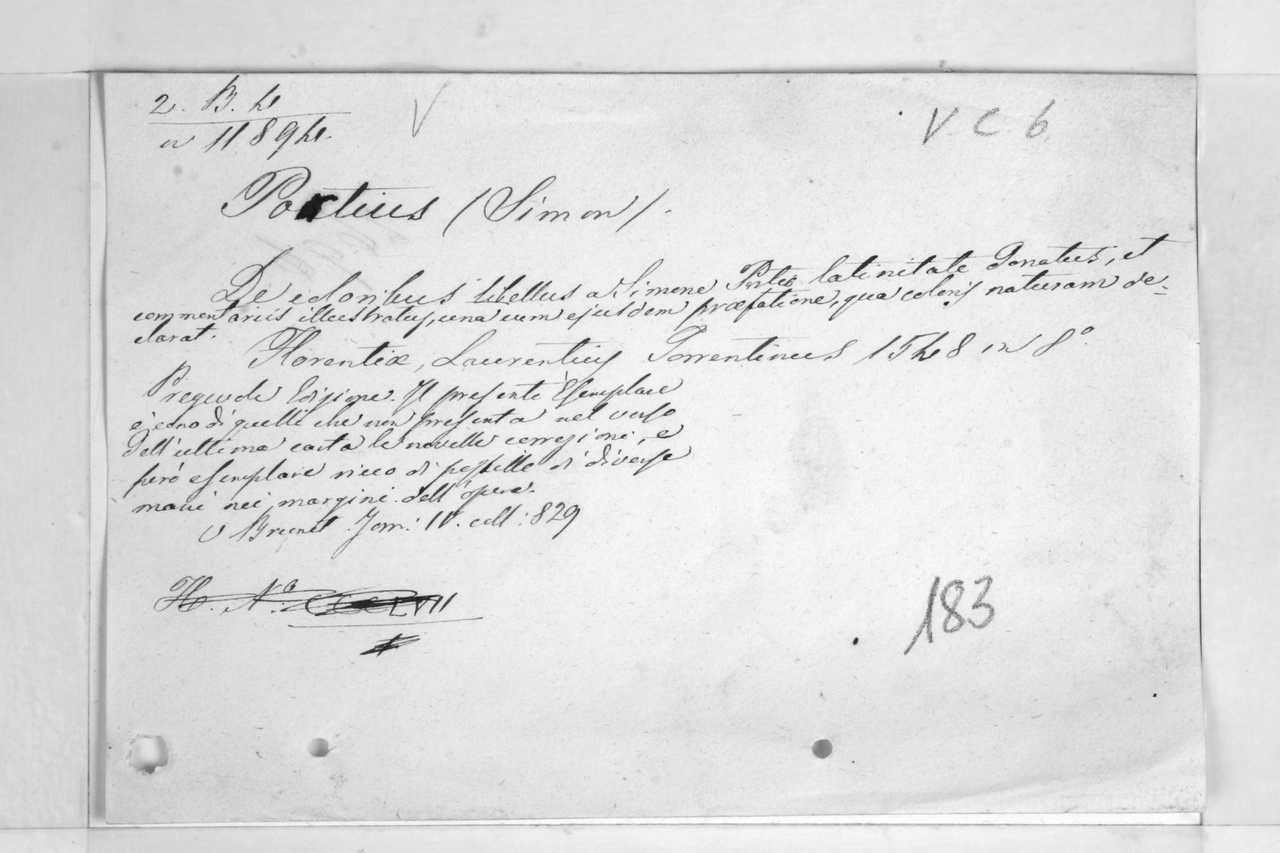 2. B. 4
V
V C b
n 11894.
Portius (Simon).
De coloribus libellus a Simone Portio latinitate Donatus, et
commentariis illustratus, una cum ejusdem præfatione, qua coloris naturam de-
clarat.
Florentiæ, Laurentius Torrentinus 1548 in 8°
Pregevole Edizione. Il presente Esemplare
è uno di quelli che non presenta nel verso
dell'ultima carta le novelle correzioni, e
però esemplare ricco di postille di diverse
mani nei margini dell'opera.
V Brunet Tom: IV. coll: 829
H. N.° CCCLVII
183